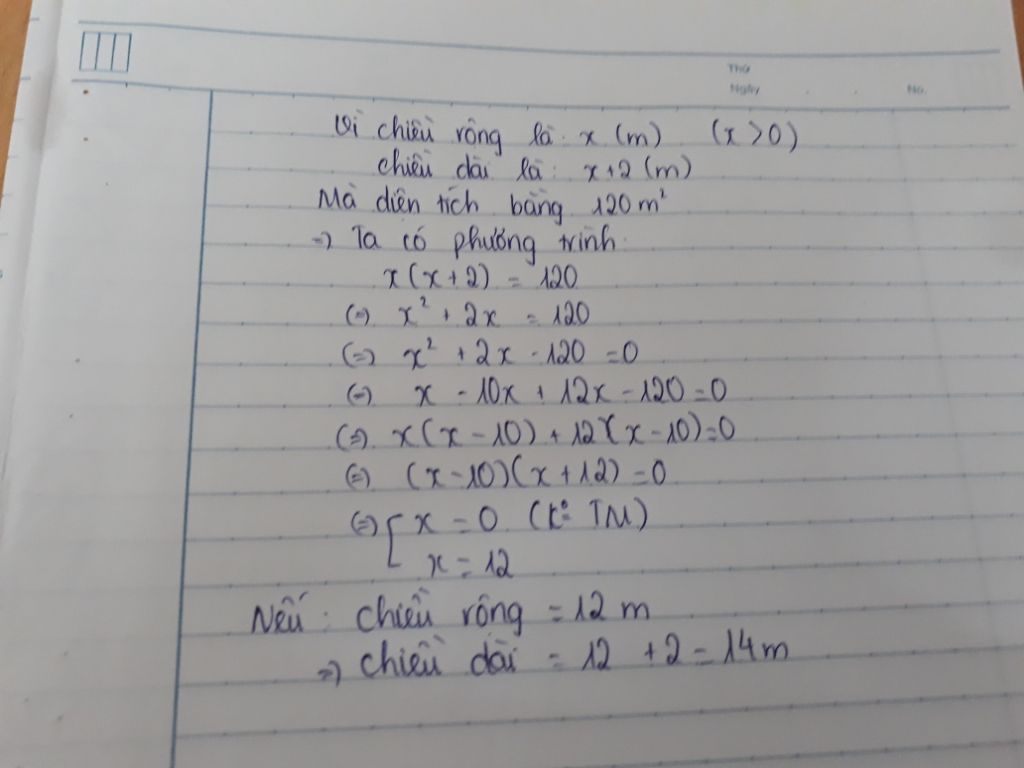 Thứ
Ngày . . No.
Vì chiều rộng là: x (m) (x > 0)
chiều dài là: x+2 (m)
Mà diện tích bằng 120 m²
=> Ta có phương trình:
x(x+2) = 120
(=) x² + 2x = 120
(=) x² + 2x - 120 = 0
(=) x - 10x + 12x - 120 = 0
(=) x(x - 10) + 12(x - 10) = 0
(=) (x - 10)(x + 12) = 0
(=) [ x = 0 (k° TM)
x = 12
Nếu : chiều rộng = 12 m
=> chiều dài = 12 + 2 = 14m